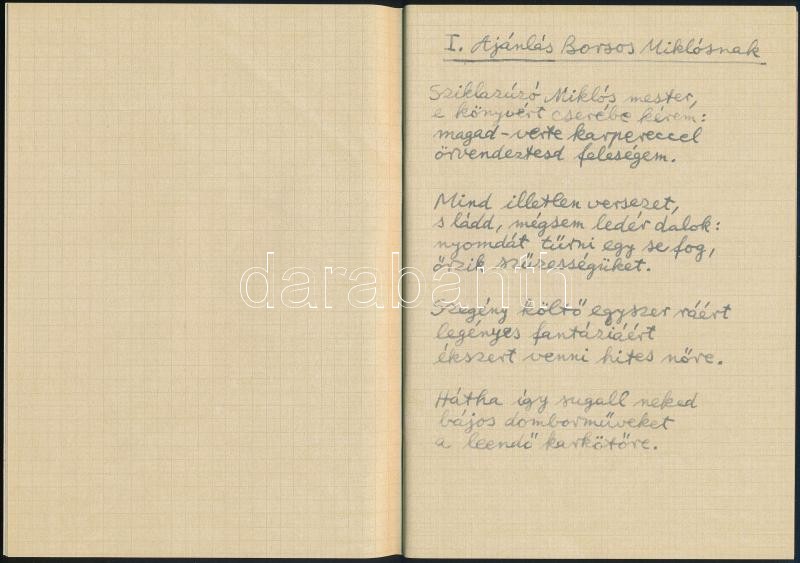 I. Ajánlás Borsos Miklósnak
Sziklazúzó Miklós mester,
e könyvért cserébe kérem:
magad-verte karpereccel
örvendeztesd feleségem.
Mind illetlen versezet,
s ládd, mégsem ledér dalok:
nyomdát tűrni egy se fog,
őrzik szüzességüket.
darabanth
Szegény költő egyszer ráért
legényes fantáziáért
ékszert venni hites nőre.
Hátha így sugall neked
bájos domborműveket
a leendő karkötőre.